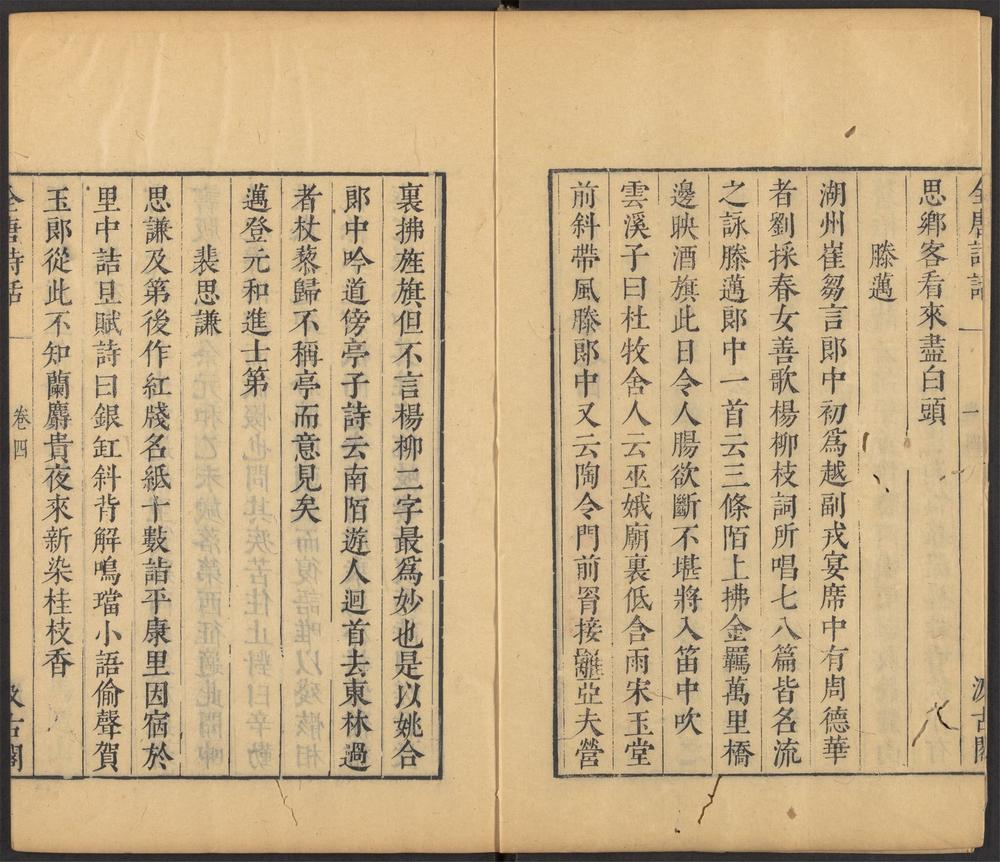 全唐詩話
卷四
汲古閣
思鄉客看來盡白頭
滕邁
湖州崔芻言郎中初爲越副戎宴席中有周德華
者劉採春女善歌楊柳枝詞所唱七八篇皆名流
之詠滕邁郎中一首云三條陌上拂金羈萬里橋
邊映酒旗此日令人腸欲斷不堪將入笛中吹
雲溪子曰杜牧舍人云巫娥廟裏低含雨宋玉堂
前斜帶風滕郎中又云陶令門前罥接䍦亞夫營
裏拂旌旗但不言楊柳二字最爲妙也是以姚合
郎中吟道傍亭子詩云南陌遊人迴首去東林過
者杖藜歸不稱亭而意見矣
邁登元和進士第
裴思謙
思謙及第後作紅牋名紙十數詣平康里因宿於
里中詰旦賦詩曰銀缸斜背解鳴璫小語偷聲賀
玉郎從此不知蘭麝貴夜來新染桂枝香
全唐詩話
卷四
汲古閣